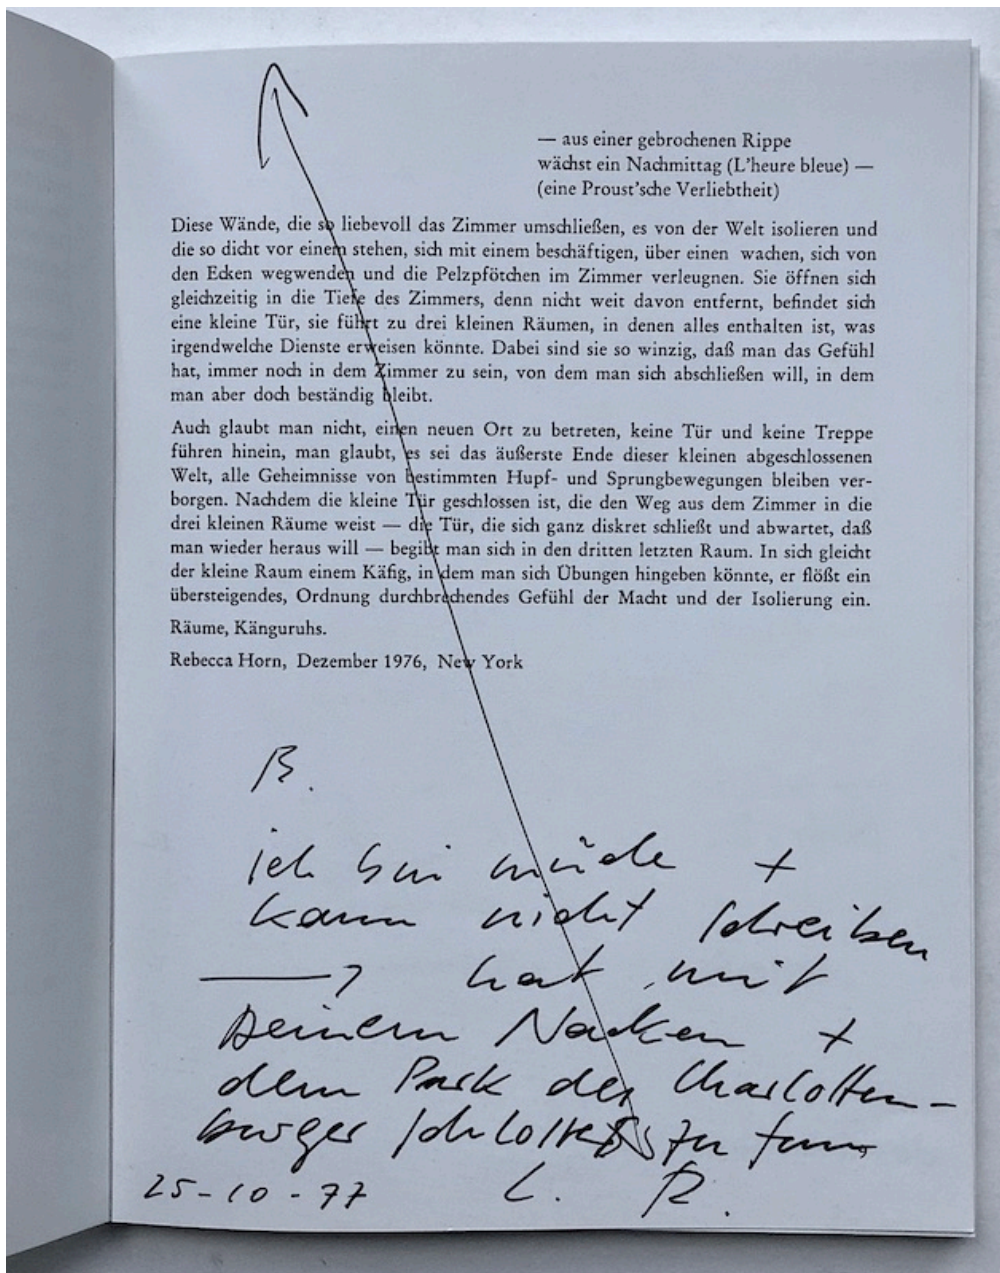 — aus einer gebrochenen Rippe
wächst ein Nachmittag (L'heure bleue) —
(eine Proust'sche Verliebtheit)
Diese Wände, die so liebevoll das Zimmer umschließen, es von der Welt isolieren und
die so dicht vor einem stehen, sich mit einem beschäftigen, über einen wachen, sich von
den Ecken wegwenden und die Pelzpfötchen im Zimmer verleugnen. Sie öffnen sich
gleichzeitig in die Tiefe des Zimmers, denn nicht weit davon entfernt, befindet sich
eine kleine Tür, sie führt zu drei kleinen Räumen, in denen alles enthalten ist, was
irgendwelche Dienste erweisen könnte. Dabei sind sie so winzig, daß man das Gefühl
hat, immer noch in dem Zimmer zu sein, von dem man sich abschließen will, in dem
man aber doch beständig bleibt.
Auch glaubt man nicht, einen neuen Ort zu betreten, keine Tür und keine Treppe
führen hinein, man glaubt, es sei das äußerste Ende dieser kleinen abgeschlossenen
Welt, alle Geheimnisse von bestimmten Hupf- und Sprungbewegungen bleiben ver-
borgen. Nachdem die kleine Tür geschlossen ist, die den Weg aus dem Zimmer in die
drei kleinen Räume weist — die Tür, die sich ganz diskret schließt und abwartet, daß
man wieder heraus will — begibt man sich in den dritten letzten Raum. In sich gleicht
der kleine Raum einem Käfig, in dem man sich Übungen hingeben könnte, er flößt ein
übersteigendes, Ordnung durchbrechendes Gefühl der Macht und der Isolierung ein.
Räume, Känguruhs.
Rebecca Horn, Dezember 1976, New York
B.
ich bin müde +
kann nicht schreiben
→ hat mit
Deinem Nacken +
dem Park des Charlotten-
burger Schlosses zu tun
25-10-77 L. R.